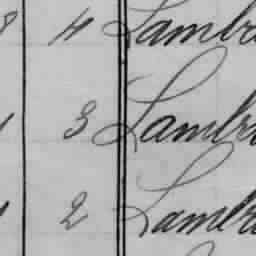 8 4 Lambr
3 Lambr
2 Lambr